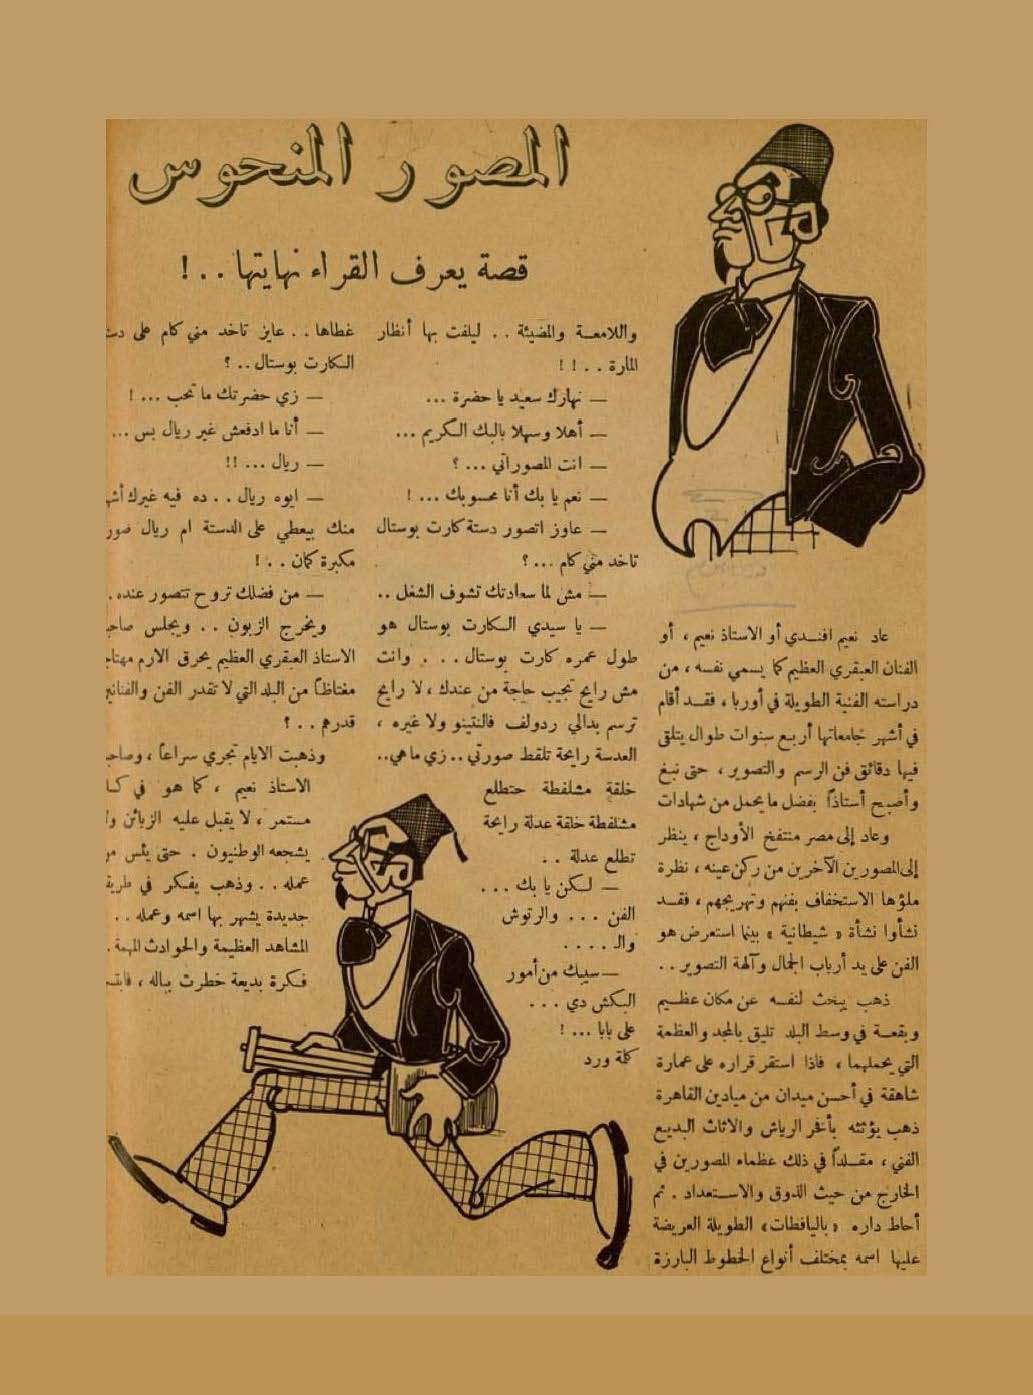 المصور المنحوس
قصة يعرف القراء نهايتها . . !
عاد نعيم افندي أو الاستاذ نعيم ، أو
الفنان العبقري العظيم كما يسمي نفسه ، من
دراسته الفنية الطويلة في أوربا ، فقد أقام
في أشهر جامعاتها أربع سنوات طوال يتلقى
فيها دقائق فن الرسم والتصوير ، حتى نبغ
وأصبح أستاذاً بفضل ما يحمل من شهادات
وعاد إلى مصر منتفخ الأوداج ، ينظر
إلى المصورين الآخرين من ركن عينه ، نظرة
ملؤها الاستخفاف بفنهم وتهريجهم ، فقد
نشأوا نشأة « شيطانية » بينما استعرض هو
الفن على يد أرباب الجمال وآلهة التصوير . .
ذهب يبحث لنفسه عن مكان عظيم
وبقعة في وسط البلد تليق بالمجد والعظمة
التي يحملهما ، فاذا استقر قراره على عمارة
شاهقة في أحسن ميدان من ميادين القاهرة
ذهب يؤثثه بأفخر الرياش والاثاث البديع
الفني ، مقلداً في ذلك عظماء المصورين في
الخارج من حيث الذوق والاستعداد . ثم
أحاط داره « باليافطات » الطويلة العريضة
عليها اسمه بمختلف أنواع الخطوط البارزة
واللامعة والمضيئة . . ليلفت بها أنظار
المارة . . ! !
— نهارك سعيد يا حضرة ...
— أهلا وسهلا بالبك الكريم ...
— انت المصوراتي ... ؟
— نعم يا بك أنا محسوبك ... !
— عاوز اتصور دستة كارت بوستال
تاخد مني كام ... ؟
— مش لما سعادتك تشوف الشغل ..
— يا سيدي الكارت بوستال هو
طول عمره كارت بوستال . . . وانت
مش رايح تجيب حاجة من عندك ، لا رايح
ترسم بدالي ردولف فالنتينو ولا غيره ،
العدسة رايحة تلقط صورتي .. زي ماهي..
خلقة مشلفطة حتطلع
مشلفطة خلقة عدلة رايحة
تطلع عدلة . .
— لكن يا بك . . .
الفن . . . والرتوش
وال . . . .
— سيبك من أمور
البكش دي . . .
على بابا . . . !
كلمة ورد
غطاها . . عايز تاخد مني كام على دست
الكارت بوستال .. ؟
— زي حضرتك ما تحب ... !
— أنا ما ادفعش غير ريال بس ...
— ريال ... !!
— ايوه ريال . . ده فيه غيرك أشه
منك بيعطي على الدستة ام ريال صور
مكبرة كمان . . !
— من فضلك تروح تتصور عنده .
ويخرج الزبون . . ويجلس صاحب
الاستاذ العبقري العظيم يحرق الارم مهتاج
مغتاظاً من البلد التي لا تقدر الفن والفنانين
قدرهم . . ؟
وذهبت الايام تجري سراعاً ، وصاحب
الاستاذ نعيم ، كما هو في كسا
مستمر ، لا يقبل عليه الزبائن ولا
يشجعه الوطنيون . حتى يئس من
عمله . . وذهب يفكر في طريقة
جديدة يشهر بها اسمه وعمله . .
المشاهد العظيمة والحوادث المهمة .
فكرة بديعة خطرت بباله ،